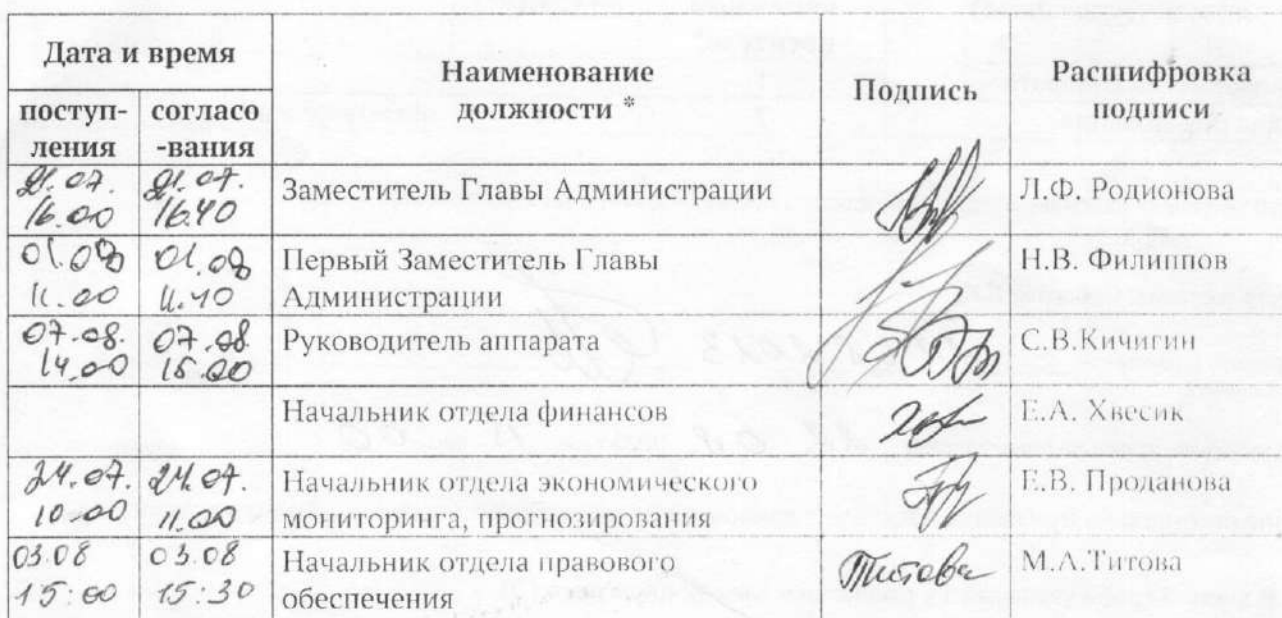 Дата и время
Наименование
должности *
Подпись
Расшифровка
подписи
поступ-
ления
согласо
-вания
21.07.
16.00
21.07.
16.40
Заместитель Главы Администрации
Л.Ф. Родионова
01.08
11.00
01.08
11.40
Первый Заместитель Главы
Администрации
Н.В. Филиппов
07.08.
14.00
07.08.
15.00
Руководитель аппарата
С.В.Кичигин
Начальник отдела финансов
Е.А. Хвесик
24.07.
10.00
24.07.
11.00
Начальник отдела экономического
мониторинга, прогнозирования
Е.В. Проданова
03.08
15:00
03.08
15:30
Начальник отдела правового
обеспечения
Титова
М.А.Титова